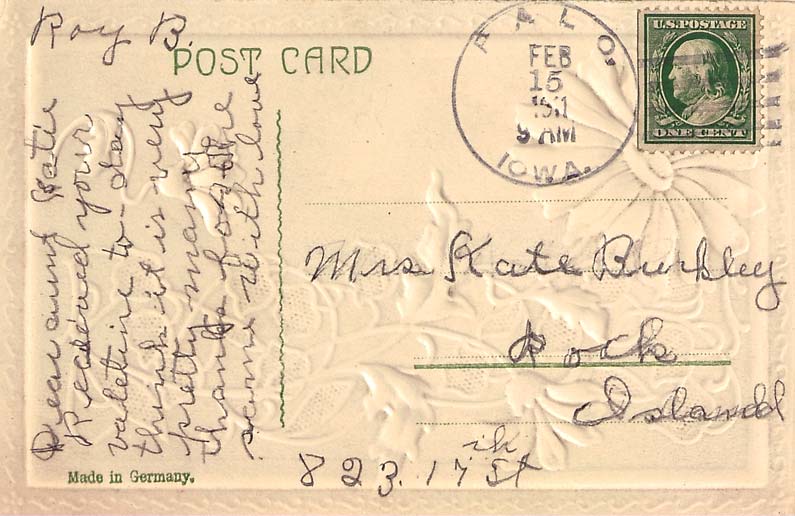 Roy B.
POST CARD
AALO,
FEB
15
1911
9 AM
IOWA.
U.S. POSTAGE
ONE CENT
Dear aunt Katie
Recieved your
valetine to-day
think it is very
pretty many
thanks for the
same with love
Mrs Kate Burkley
Rock
Island
823. 17 th St
Made in Germany.